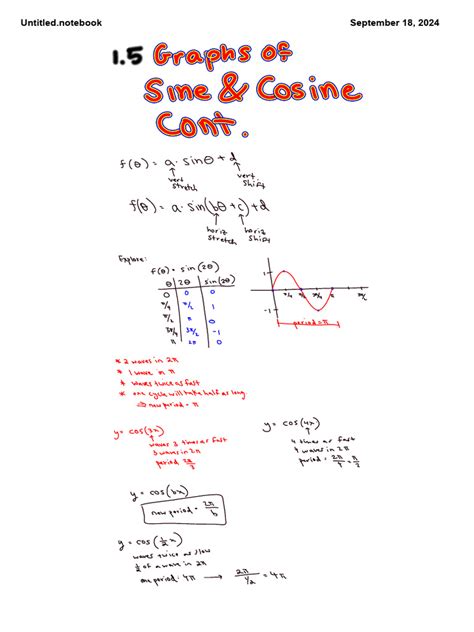 Untitled.notebook
September 18, 2024
1.5 Graphs of
Sine & Cosine
Cont.
f(θ) = a· sinθ + d
vert stretch
vert shift
f(θ) = a· sin(bθ + c) + d
horiz stretch
horiz shift
Explore:
f(θ) = sin(2θ)
θ 2θ sin(2θ)
0 0 0
π/4 π/2 1
π/2 π 0
3π/4 3π/2 -1
π 2π 0
1
-1
π/4 π/2 3π/4 π
period = π
* 2 waves in 2π
* 1 wave in π
* waves twice as fast
* one cycle will take half as long
⇒ new period = π
y = cos(3x)
waves 3 times as fast
3 waves in 2π
period 2π/3
y = cos(4x)
4 times as fast
4 waves in 2π
period = 2π/4 = π/2
y = cos(bx)
new period = 2π/b
y = cos(½x)
waves twice as slow
½ of a wave in 2π
one period: 4π → 2π/½ = 4π